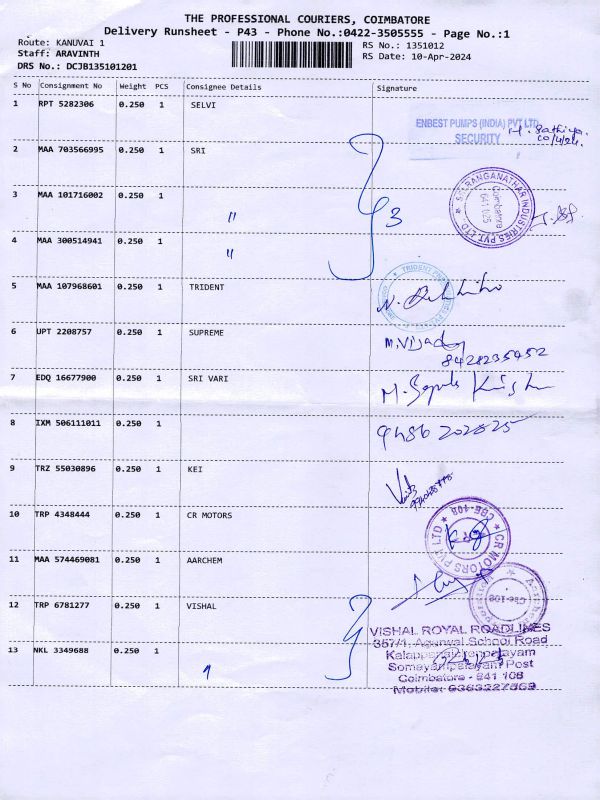 THE PROFESSIONAL COURIERS, COIMBATORE
Delivery Runsheet - P43 - Phone No.:0422-3505555 - Page No.:1
Route: KANUVAI 1
Staff: ARAVINTH
DRS No.: DCJB135101201
RS No.: 1351012
RS Date: 10-Apr-2024
S No Consignment No Weight PCS Consignee Details Signature
1 RPT 5282306 0.250 1 SELVI
ENBEST PUMPS (INDIA) PVT LTD
SECURITY
2 MAA 703566995 0.250 1 SRI
3 MAA 101716002 0.250 1 "
3
SRI RANGANATHAR INDUSTRIES PVT. LTD.
Coimbatore
641 025
4 MAA 300514941 0.250 1 "
5 MAA 107968601 0.250 1 TRIDENT
TRIDENT
6 UPT 2208757 0.250 1 SUPREME
M.Vijay
8428235952
7 EDQ 16677900 0.250 1 SRI VARI
8 IXM 506111011 0.250 1
9 TRZ 55030896 0.250 1 KEI
10 TRP 4348444 0.250 1 CR MOTORS
CR MOTORS PVT LTD
CBE-108
11 MAA 574469081 0.250 1 AARCHEM
Cbe-108
12 TRP 6781277 0.250 1 VISHAL
13 NKL 3349688 0.250 1 "
VISHAL ROYAL ROADLINES
357/1, Agarwal School Road
Somayampalayam Post
Coimbatore - 641 108
Mobile: 9363227569